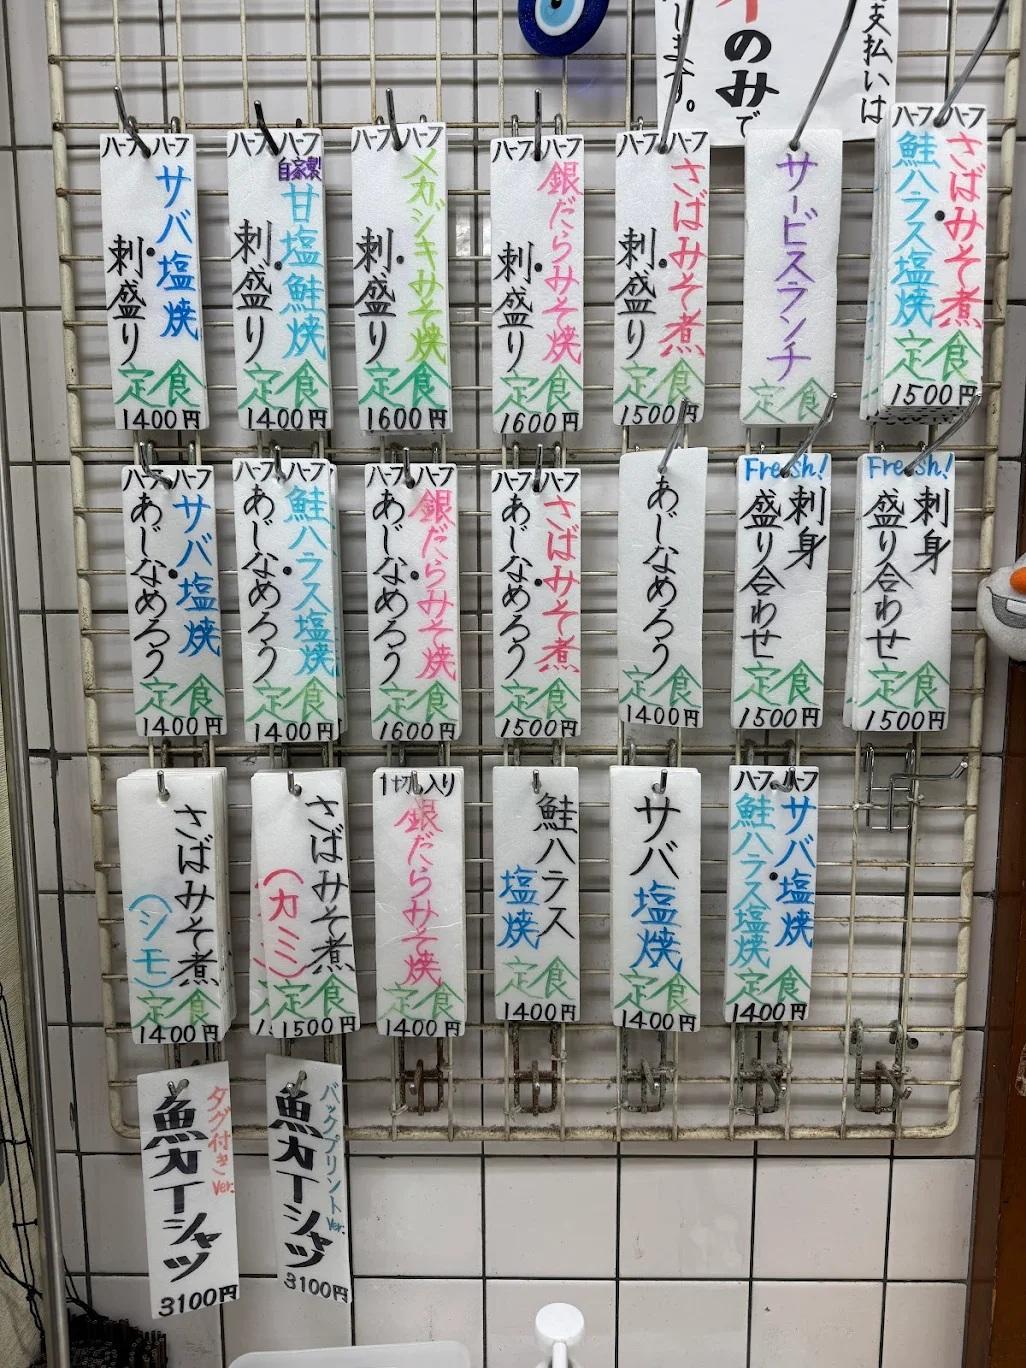 支払いは
のみで
します。
ハーフ ハーフ
サバ塩焼
・
刺盛り
定食
1400円
ハーフ ハーフ
自家製
甘塩鮭焼
・
刺盛り
定食
1400円
ハーフ ハーフ
メカジキみそ焼
・
刺盛り
定食
1600円
ハーフ ハーフ
銀だらみそ焼
・
刺盛り
定食
1600円
ハーフ ハーフ
さばみそ煮
・
刺盛り
定食
1500円
サービスランチ
定食
ハーフ ハーフ
さばみそ煮
・
鮭ハラス塩焼
定食
1500円
ハーフ ハーフ
サバ塩焼
・
あじなめろう
定食
1400円
ハーフ ハーフ
鮭ハラス塩焼
・
あじなめろう
定食
1400円
ハーフ ハーフ
銀だらみそ焼
・
あじなめろう
定食
1600円
ハーフ ハーフ
さばみそ煮
・
あじなめろう
定食
1500円
あじなめろう
定食
1400円
Fresh!
刺身
盛り合わせ
定食
1500円
Fresh!
刺身
盛り合わせ
定食
1500円
さばみそ煮
(シモ)
定食
1400円
さばみそ煮
(カミ)
定食
1500円
1切入り
銀だらみそ焼
定食
1400円
鮭ハラス
塩焼
定食
1400円
サバ
塩焼
定食
1400円
ハーフ ハーフ
サバ塩焼
・
鮭ハラス塩焼
定食
1400円
タグ付きver.
魚力Tシャツ
3100円
バックプリントver.
魚力Tシャツ
3100円